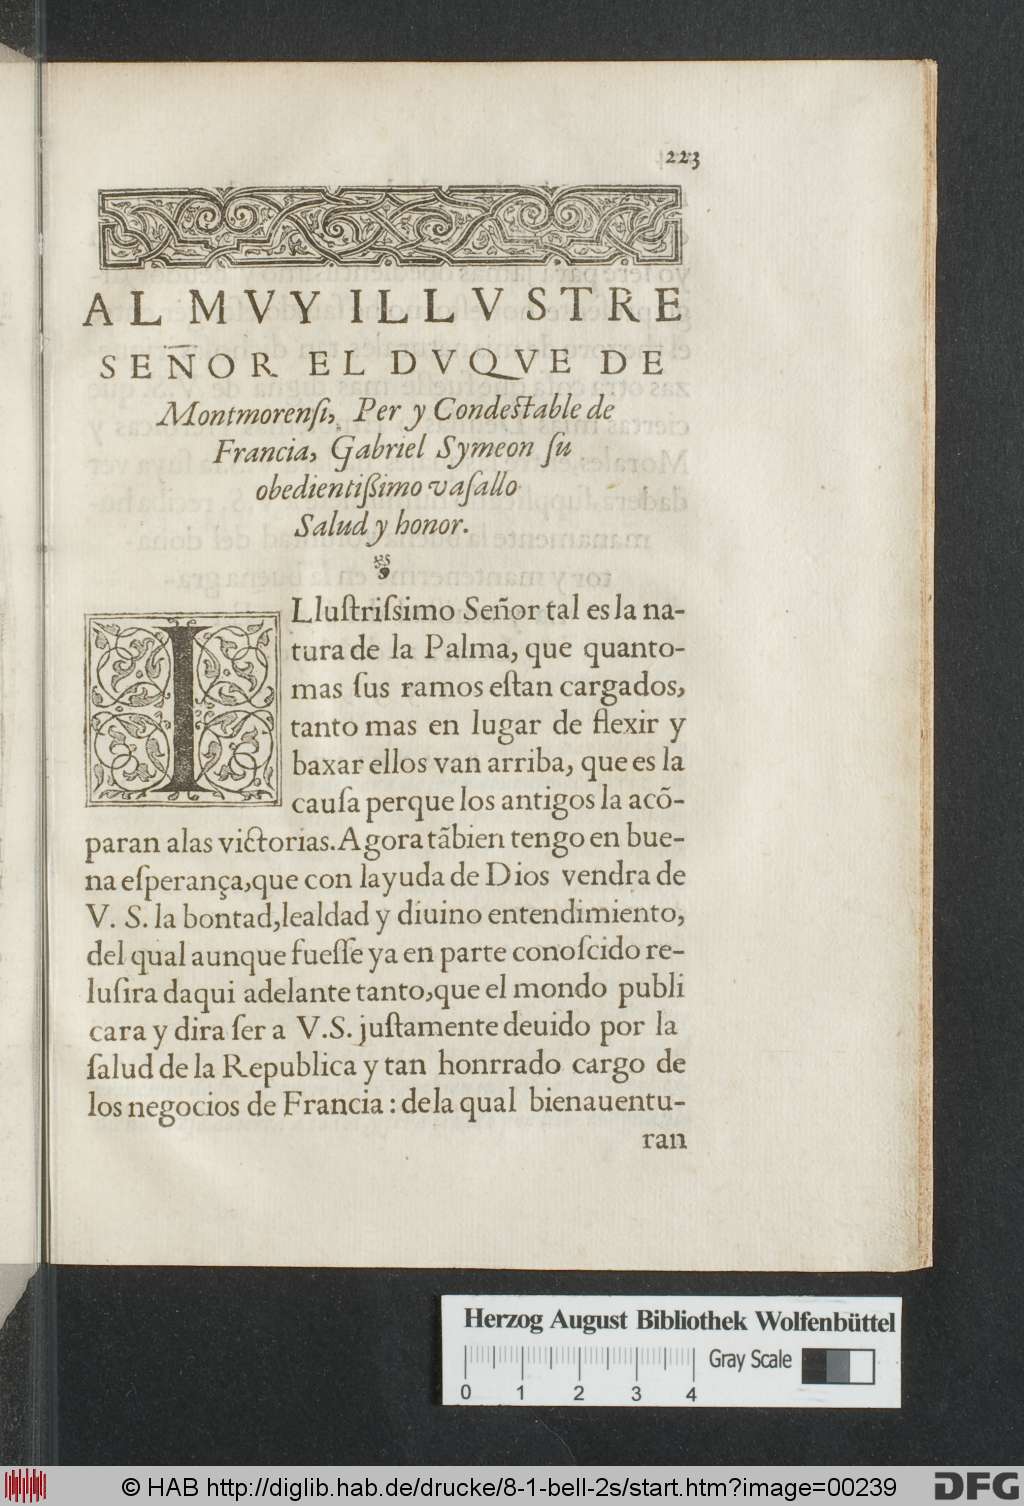 223
AL MVY ILLVSTRE
SEÑOR EL DVQVE DE
Montmorenſi, Per y Condeſtable de
Francia, Gabriel Symeon ſu
obedientiſsimo vaſallo
Salud y honor.
ILluſtriſsimo Señor tal es la na-
tura de la Palma, que quanto-
mas ſus ramos eſtan cargados,
tanto mas en lugar de flexir y
baxar ellos van arriba, que es la
cauſa perque los antigos la acõ-
paran alas victorias. Agora tãbien tengo en bue-
na eſperança, que con layuda de Dios vendra de
V. S. la bontad, lealdad y diuino entendimiento,
del qual aunque fueſſe ya en parte conoſcido re-
luſira daqui adelante tanto, que el mondo publi
cara y dira ſer a V.S. juſtamente deuido por la
ſalud de la Republica y tan honrrado cargo de
los negocios de Francia : dela qual bienauentu-
ran
Herzog August Bibliothek Wolfenbüttel
Gray Scale
0 1 2 3 4
© HAB http://diglib.hab.de/drucke/8-1-bell-2s/start.htm?image=00239
DFG